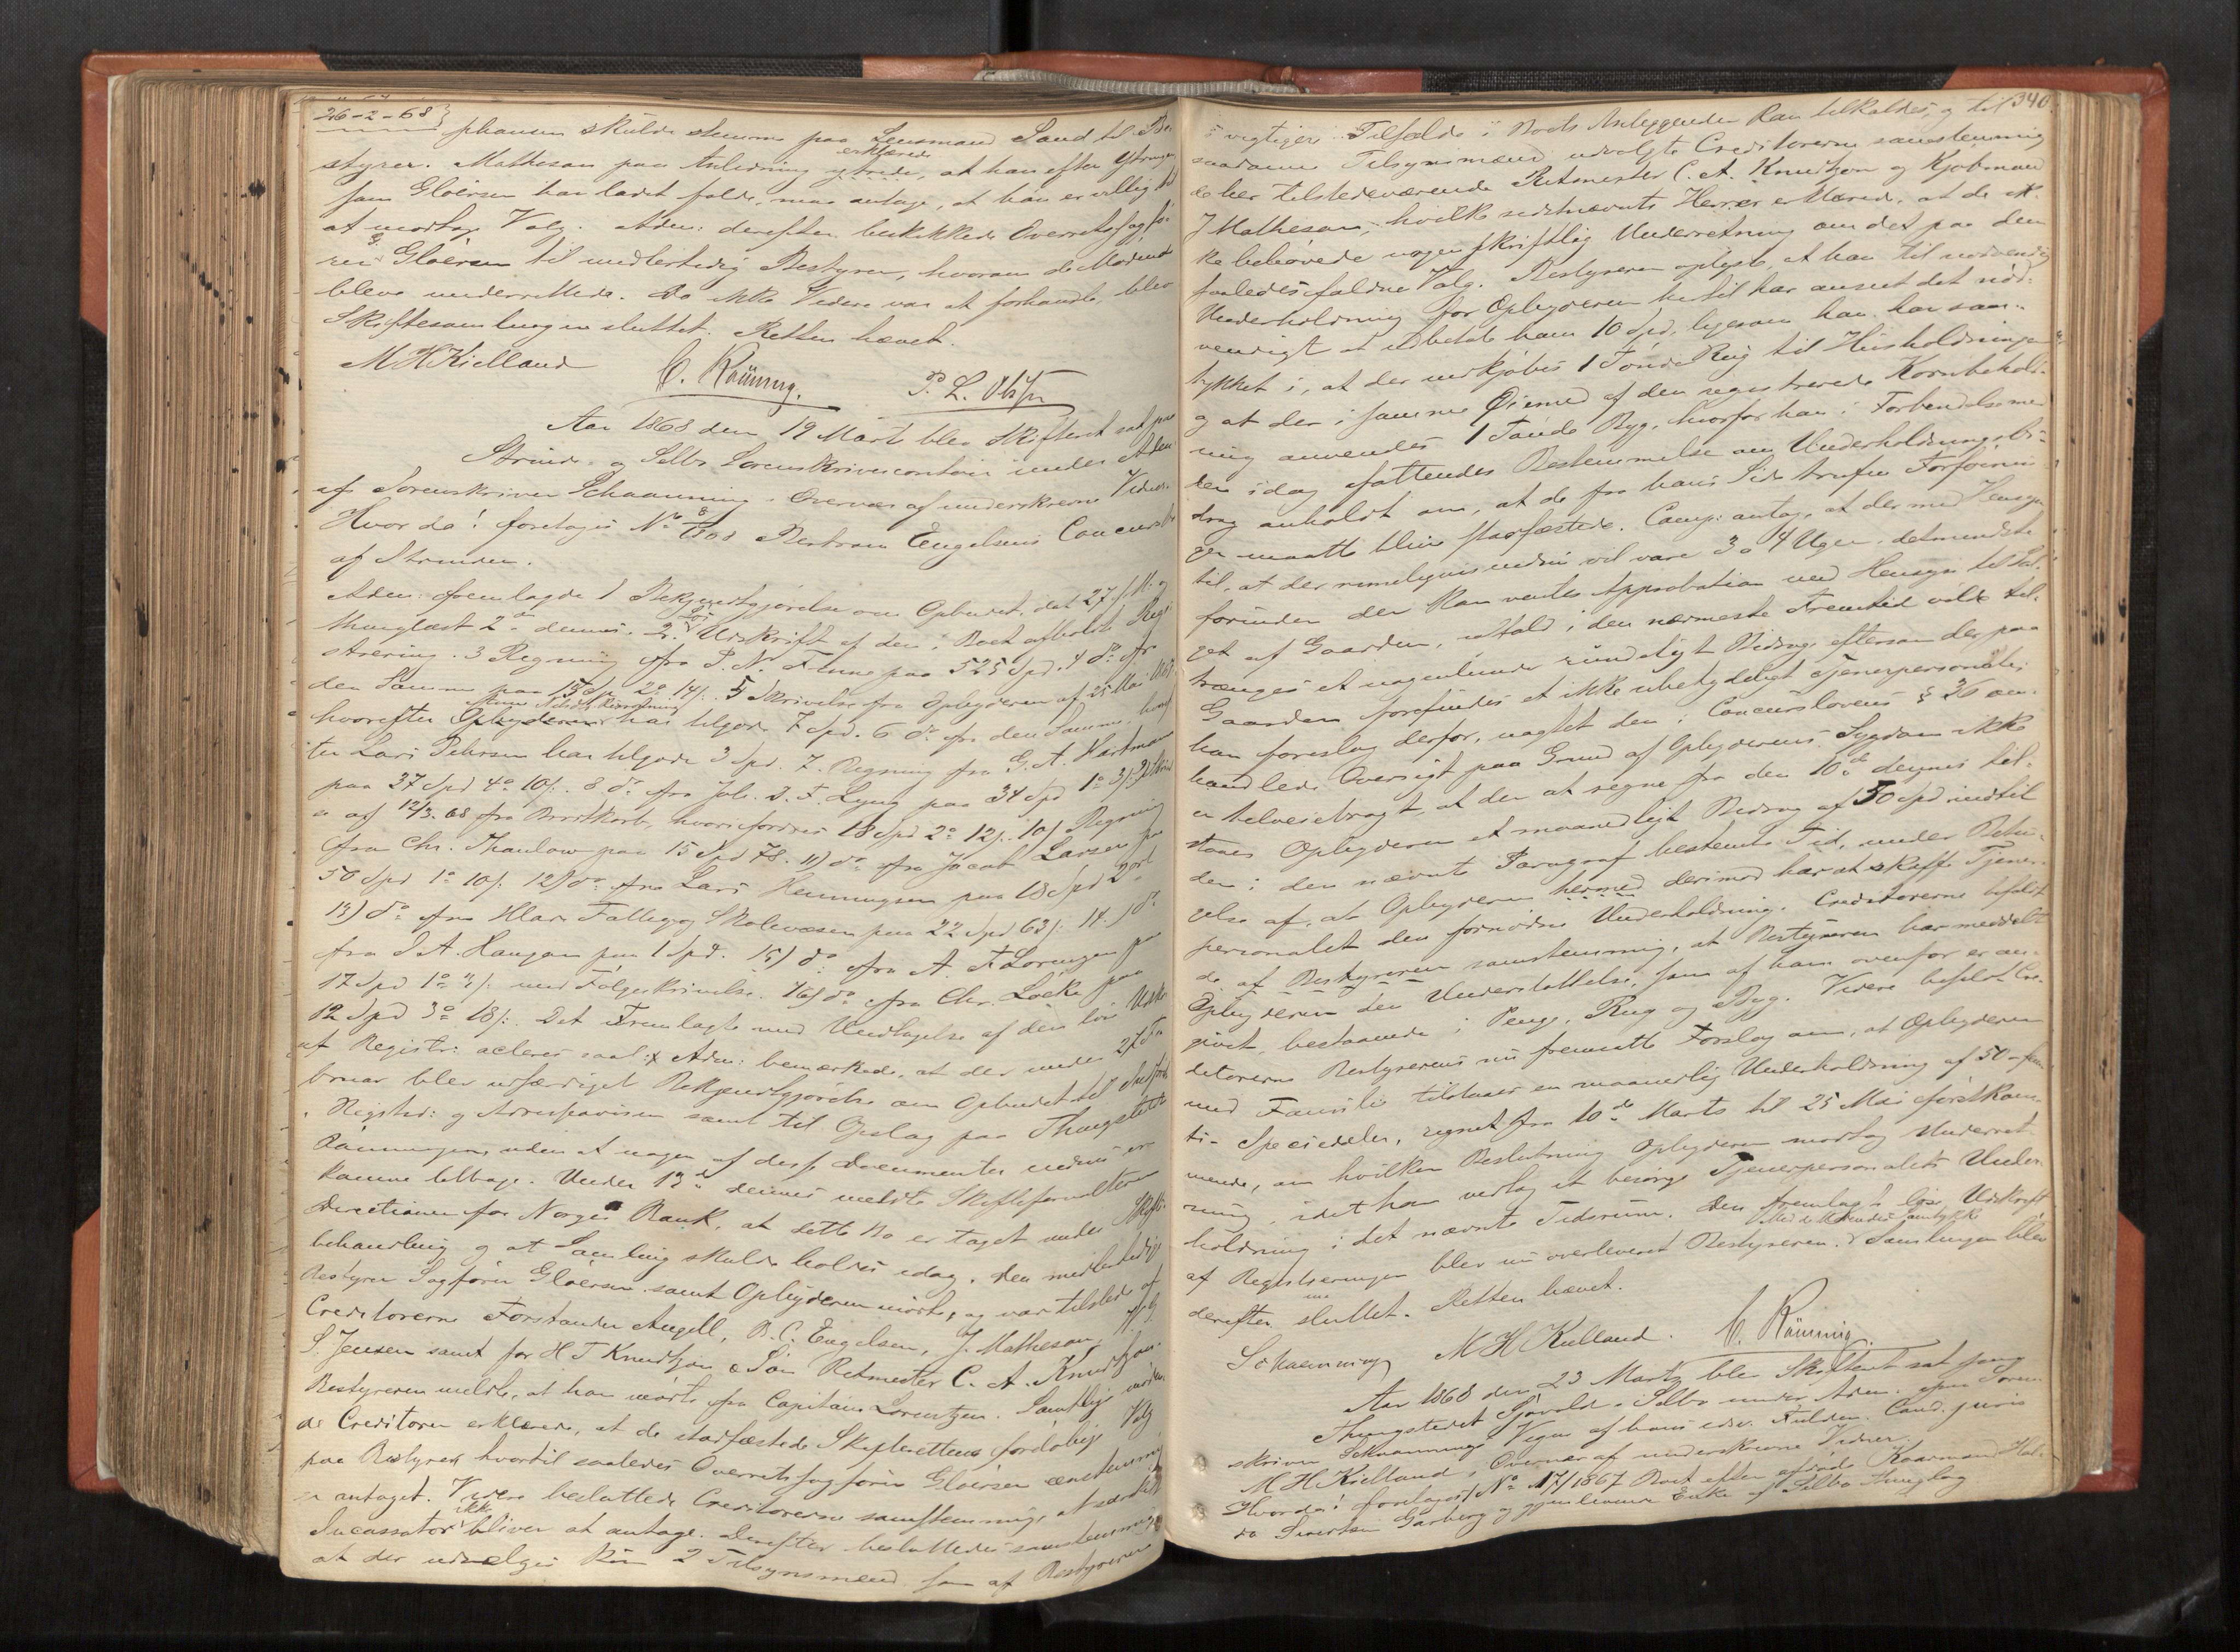 26-2-68
phansen skulde stemme paa Lensmand Sand til Be-
styrer. Matheson paa Anledning erklærede, at han efter Ytringer
som Gløersen har ladet falde, maa antage, at han er villig til
at modtage Valg. Adm: derefter beskikkede Overretssagfø-
rer Gløersen til midlertidig Bestyrer, hvorom de Mødende
bleve underrettede. Da ikke Videre var at forhandle, blev
Skiftesamlingen sluttet. Retten hævet.
M H Kielland C. Rønning. P. L.
Aar 1868 den 19 Marts blev Skifteret sat paa
Strinde- og Selbo Sorenskrivercontoir under Adm:
af Sorenskriver Schaanning. Overvær af underskrevne Vidner.
Hvor da! foretoges No 8/1868 Bertram Engelsens Concursbo
af Strinden.
Adm: fremlagde 1 Bekjendtgjørelse om Opbudet, dat 27 f. M. og
thinglæst 2d dennes. 2. Løs Udskrift af den i Boet afholdte Regi-
strering. 3 Regning fra P. N. Finne paa 525 Spd. 4 do fra
den Samme paa 15 Spd 2o 14 s. 5 Skrivelse fra Opbyderen af 25 Mai 1867
hvorefter har tilgode 7 Spd. 6 do fra den Samme, hvoref-
ter Lars Petersen har tilgode 3 Spd. 7. Regning fra G. A. Hartmann
paa 37 Spd 4o 10 s. 8 do fra Joh. D. F. Lyng paa 34 Spd 1o 3 s.
af 12/3 68 fra hvori fordres 18 Spd 2o 12 s. 10) Regning
fra Chr. Thaulow paa 15 Spd 78. 11) do fra Jacob Larsen paa
50 Spd 1o 10 s. 12) do fra Lars Henningsen paa 18 Spd 2 ort
13) do fra Skolevæsen paa 22 Spd 63 s. 14) do
fra S. A. Haugan paa 1 Spd. 15) do fra A. F Lorenzen paa
17 Spd 1o med Følgeskrivelse. 16) do fra Chr. Løcke paa
12 Spd 3o 18 s. Det Fremlagte med Undtagelse af den løse Udskr.
af Registr: acteres saal: Adm: bemærkede, at der under 27 Fe-
bruar blev udfærdiget Bekjendtgjørelse om Opbudet til
Registrd: og Adresseavisen samt til Opslag paa Thingstedet
Rønningen, uden at nogen af disse Documenter endnu ere
komne tilbage. Under 12 dennes meldte Skifteforvalteren
Directionen for Norges Bank, at dette Bo er taget under Skifte-
behandling og at Samling skulde holdes idag. Den midlertidige
Bestyrer Sagfører Gløersen samt Opbyderen mødte, og var tilstede af
Creditorerne Forstander Angell, B. C. Engelsen, J. Matheson,
S. Jensen samt for H T Knudtzon & Søn Ritmester C. A. Knudtzon.
Bestyreren meldte, at han mødte for Capitain Lorentzen. Samtlige møden-
de Creditorer erklærede, at de stadfæstede Skifterettens foreløbige Valg
paa Bestyrer, hvortil saaledes Overretssagfører Gløersen eenstemmig
er antaget. Videre besluttede Creditorerne samstemmig, at særskilt
Incassator ikke bliver at antage. Derefter besluttedes samstemmig
at der udvælges kun 2 Tilsynsmænd som af Bestyreren
340
i vigtigere Tilfælde i Boets Anliggender kan tilkaldes, og til
saadanne Tilsynsmænd udvalgte Creditorerne samstemmig
de her tilstedeværende Ritmester C. A. Knudtzon og Kjøbmand
J Matheson, hvilke sidstnævnte Herrer erklærede, at de ik-
ke behøvede nogen skriftlig Underretning om det paa dem
saaledes faldne Valg. Bestyreren oplyste, at han til nødvendig
Underholdning for Opbyderen hidtil har anseet det nød-
vendigt at udbetale ham 10 Spd, ligesom han har sam-
tykket i, at der indkjøbes 1 Tønde Rug til Husholdningen
og at der i samme Øiemed af den registrerede Kornbehold-
ning anvendes 1 Tønde Byg, hvorfor han i Forbindelse med
den idag fattendes Bestemmelse om Underholdningsbi-
drag anholdt om, at de fra hans Side trufne Forføinin-
ger maatte blive stadfæstede. Comp: antog, at der med Hensyn
til, at der rimeligvis endnu vil være 3 a 4 Uger, detmindste
forinden der kan ventes Approbation med Hensyn til Sal-
get af Gaarden, ialfald i den nærmeste Fremtid vilde til-
trænges et nogenlunde rundeligt Bidrag eftersom der paa
Gaarden forefindes et ikke ubetydeligt Tjenerpersonale;
han foreslog derfor, uagtet den i Concurslovens § 36 om-
handlede Oversigt paa Grund af Opbyderens Sygdom ikke
er tilveiebragt, at der at regne fra den 10de dennes til-
staaes Opbyderen et maanedligt Bidrag af 50 Spd indtil
den i den nævnte Paragraf bestemte Tid, under Betin-
gelse af, at Opbyderen hermed derimod har at skaffe Tjener-
personalet den fornødne Underholdning. Creditorerne bifaldt
de af Bestyreren samstemmig, at Bestyreren har meddelt
Opbyderen den Understøttelse, som af ham ovenfor er an-
givet, bestaaende i Penge, Rug og Byg. Videre bifaldt Cre-
ditorerne Bestyrerens nu fremsatte Forslag om, at Opbyderen
med Familie tilstaaes en maanedlig Underholdning af 50 - fem-
ti - Speciedaler, regnet fra 10de Marts til 25 Mai førstkom-
mende, om hvilken Beslutning Opbyderen modtog Underret-
ning, idet han vedtog at besørge Tjenerpersonalets Under-
holdning i det nævnte Tidsrum. Den fremlagte løse Udskrift
af Registreringen blev nu overleveret Bestyreren. Med de Mødendes Samtykke Samlingen blev
derefter sluttet. Retten hævet.
Schaanning M H Kielland. C. Rønning.
Aar 1868 den 23 Marts blev Skifteret sat paa
Thingstedet i Selbo under Adm. for Soren-
skriver Schaanning Vegne af hans edsv. Fuldm. Cand. juris
M H Kielland i Overvær af underskrevne Vidner.
Hvorda! foretoges No 17/1867 Boet efter afdøde Kaarmand Hal-
do Sivertsen Garberg og gjenlevende Enke af Selbo Thinglag